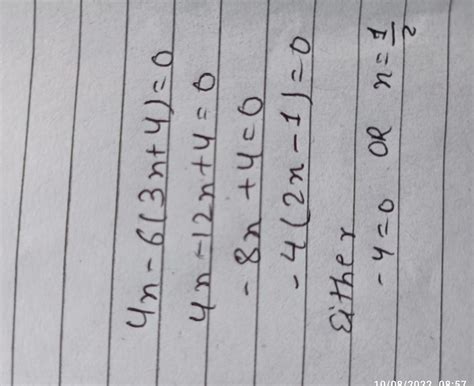 4x-6(3x+4)=0
4x-12x+4=0
-8x+4=0
-4(2x-1)=0
Either
-4=0 OR x=1/2
10/08/2022 08:57